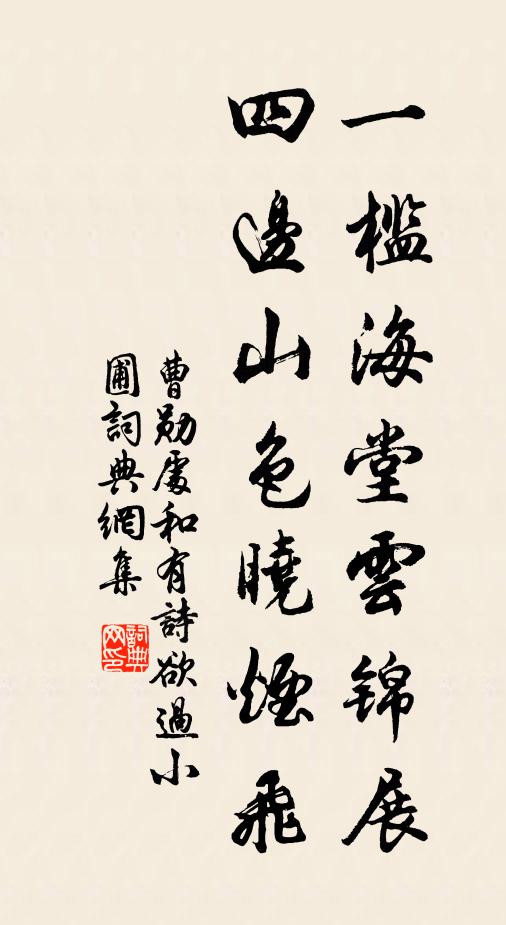 一檻海堂雲錦展
四邊山色曉煙飛
曹勛處和有詩欲過小
圃詞典網集
詞典
网印